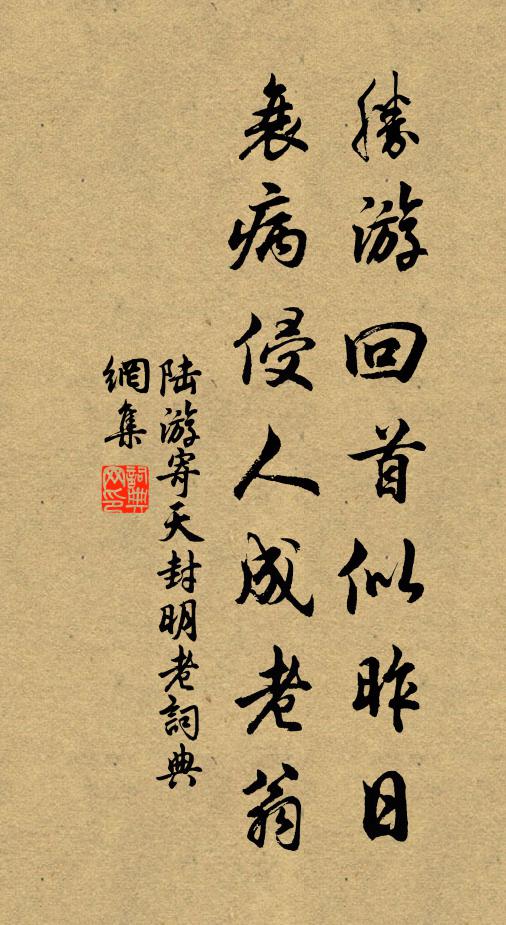 勝游回首似昨日
衰病侵人成老翁
陆游寄天封明老詞典
網集
詞典
网印